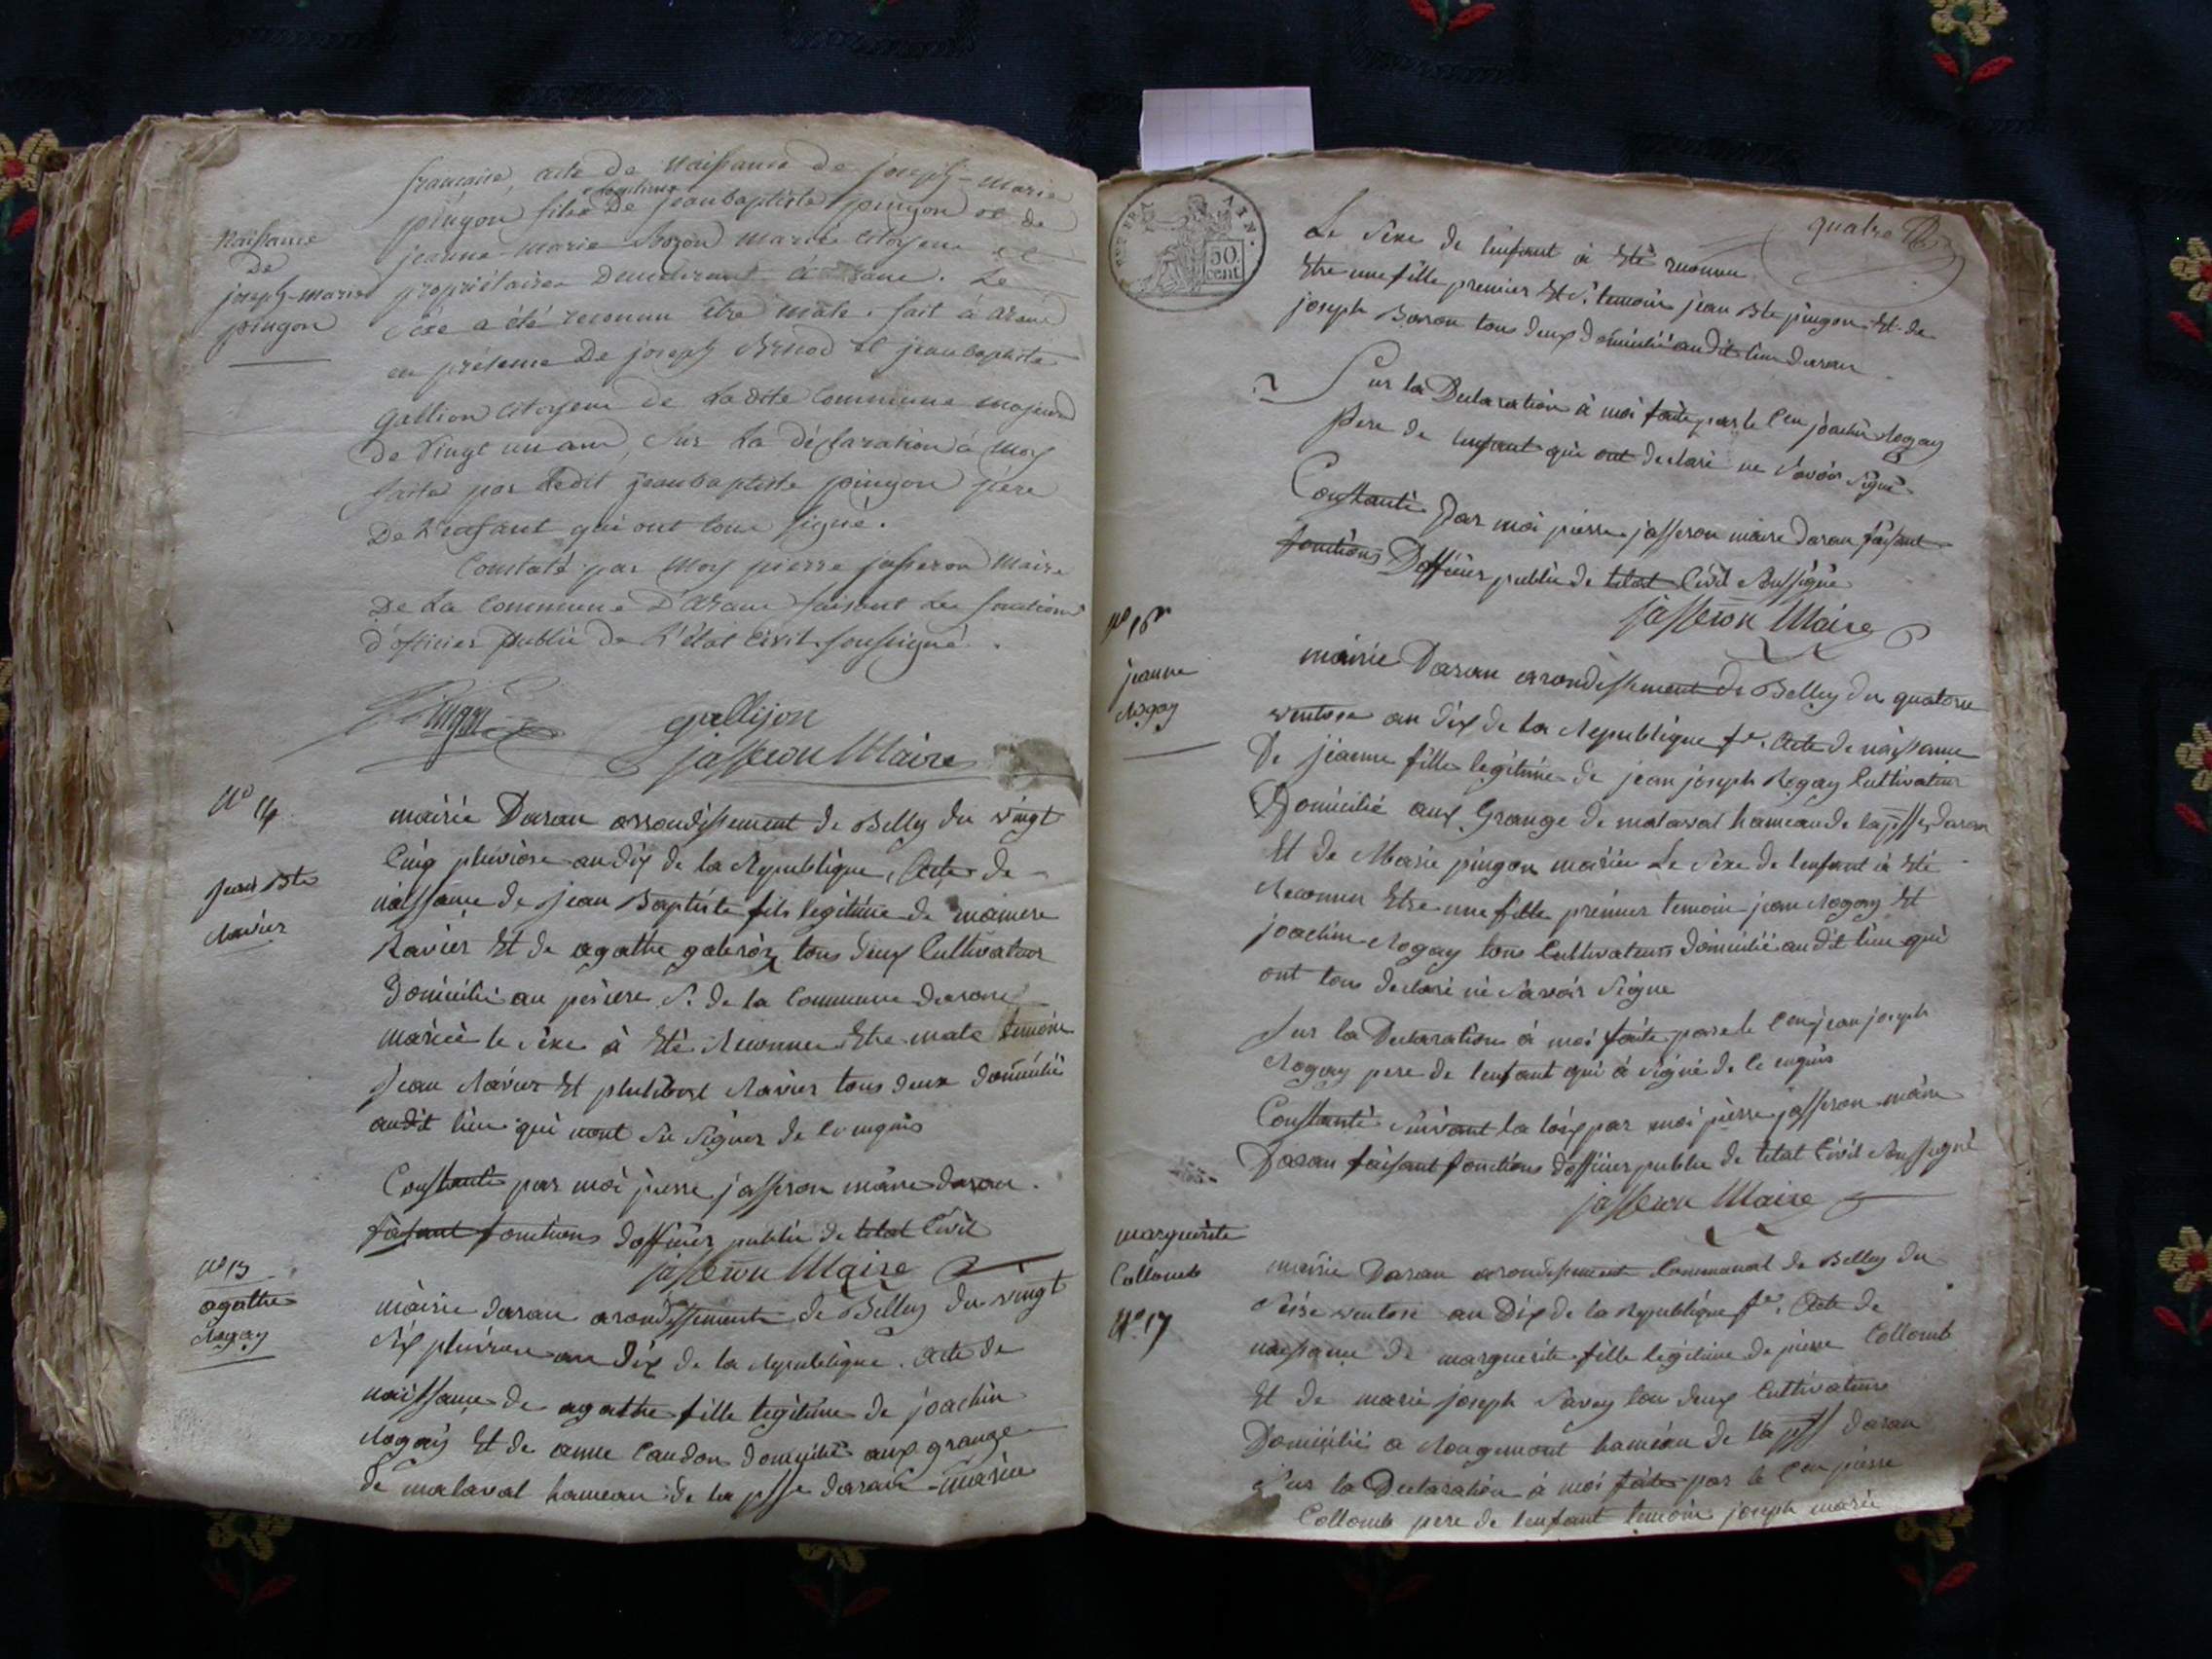 francaise, acte de Naissance de joseph-marie
pingon fils legitime De jeanbaptiste pingon et de
jeanne-marie Bozon mariés citoyens et
propriétaires Demeurant à arane. Le
Sexe a été reconnu être mâle. fait à arane
en présence De joseph Brnod et jeanbaptiste
gallion citoyens de Ladite Commune majeurs
de Vingt un ans, Sur La déclaration à Moy
faite par Ledit jeanbaptiste pingon père
De L'enfant qui ont tous signé.
Constaté par Moy pierre jasseron Maire
De La Commune D'arane faisant Les fonctions
d'officier public de L'état Civil soussigné.
Naissance
De
joseph-marie
pingon
Pingon
gallijon
jasseron Maire
No 14
jean Bte
Ravier
mairie Daran arrondissement de Belley du vingt
Cinq pluviose an dix de la Republique, Acte de
naissance de jean Baptiste fils legitime de
Ravier Et de agathe galeron tous deux Cultivateur
Domicilié au de la Commune
mariée le sexe à Eté Reconnu Etre male temoin
jean Ravier Et philibert Ravier tous deux domicilié
audit lieu qui nont Su Signer de ce enquis
Constanté par moi pierre jasseron maire daran.
faisant fonctions dofficier public de letat Civil
jasseron Maire
No 15
agathe
Rogay
mairie daran arondissement de Belley du vingt
Six pluviose an dix de la Republique. Acte de
naissance de agathe fille legitime de joachin
Rogay Et de anne Caudon domicilié aux grange
de malaval hameau de la psse daran mariée
quatre
REP. FRA.
AIN.
50.
cent
Le Sexe de lenfant à Eté reconnu
Etre une fille premier Et S. temoin jean Bte pingon Et de
joseph Boron tous deux domicilié audit lieu daran
Sur la Declaration à moi faite par le Cen joachin Rogay
Pere de lenfant qui ont declaré ne Savoir Signé
Constanté Par moi pierre jasseron maire daran faisant
fonctions Dofficier public de letat Civil Soussigné
jasseron Maire
No 16
jeanne
Rogay
mairie Daran arondissement de Belley du quatorze
ventose an dix de la Republique fse. Acte de naissance
De jeanne fille legitime de jean joseph Rogay Cultivateur
Domicilié aux Grange de malaval hameau de la psse daran
Et de Marie pingon mariée Le Sexe de lenfant à Eté
Reconnu Etre une fille premier temoin jean Rogay Et
joachim Rogay tous Cultivateurs domicilié audit lieu qui
ont tous declaré ne Savoir Signe
Sur la Declaration à moi faite par le Cen jean joseph
Rogay pere de lenfant qui à Signé de ce enquis
Constanté Suivant la loix par moi pierre jasseron maire
Daran faisant fonctions dofficier public de letat Civil Soussigné
jasseron Maire
marguerite
Collomb
No. 17
mairie Daran arondissement Communal de Belley du
Seise ventose an Dix de la Republique fse. Acte de
naissance de marguerite fille legitime de pierre Collomb
Et de marie joseph Savey tou deux Cultivateurs
Domicilié a Rougemont hameau de la psse daran
Sur la Declaration à moi faite par le Cen pierre
Collomb pere de lenfant temoin joseph marie